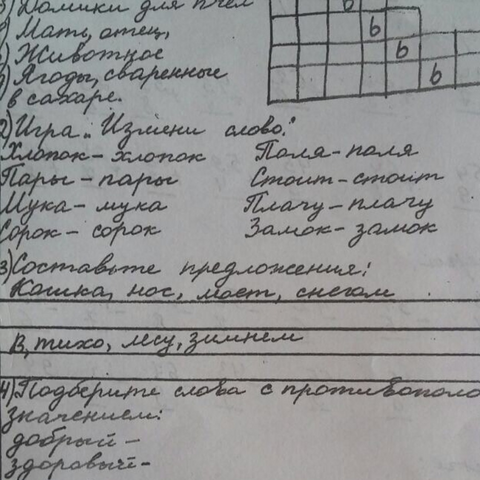 3) Домики для пчёл
Мать, отец,
Животное
Ягоды, сваренные
в сахаре.
ь
ь
ь
ь
2) Игра „Измени слово."
Хлопок - хлопок Поля - поля
Пары - пары Стоит - стоит
Мука - мука Плачу - плачу
Сорок - сорок Замок - замок
3) Составьте предложения:
Кошка, нос, моет, снегом
В, тихо, лесу, зимнем
4) Подберите слова с противополо
значением:
добрый -
здоровый -